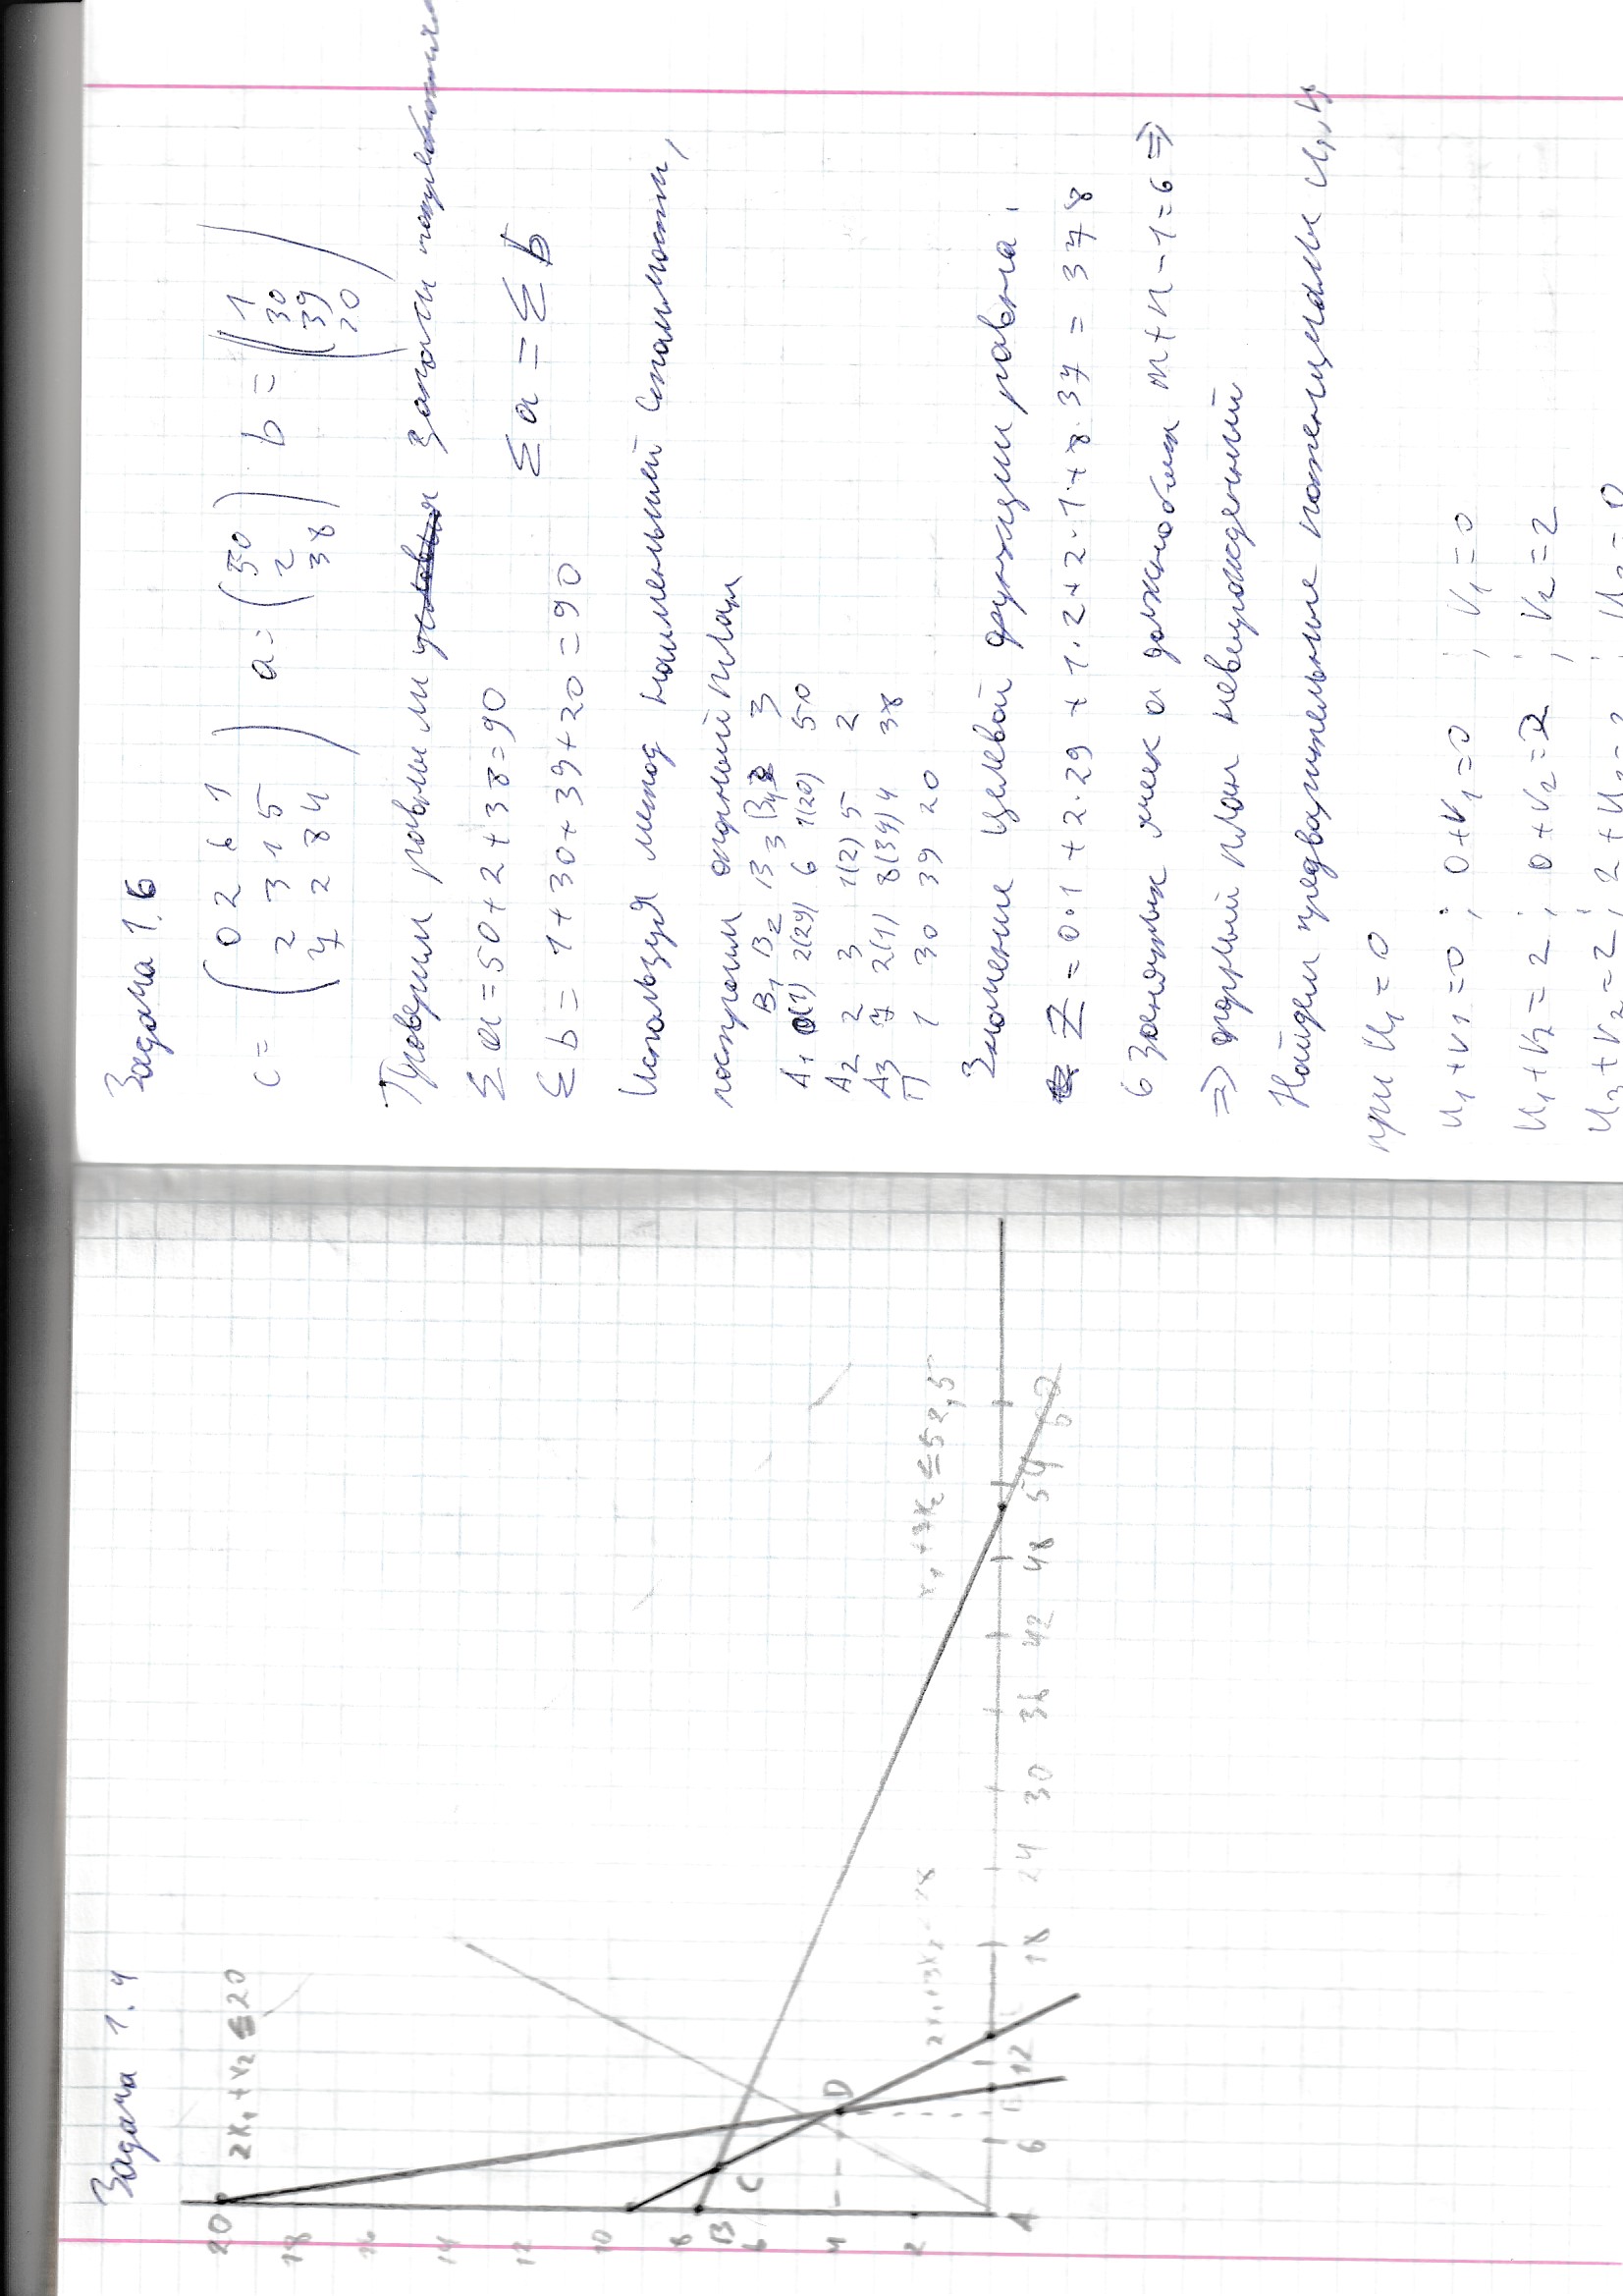 Задача 1.4
20
2x₁+x₂ ≤ 20
18
16
14
12
10
8
B
6
C
4
D
2
x₁+7x₂ ≤ 52,5
A 6 12 18 24 30 36 42 48 54 60
Задача 1.6
c = ( 0 2 6 1 ) a = ( 50 ) b = ( 1 )
2 3 1 5 2 30
7 2 8 4 38 39
20
Проверим равны ли запасы потребностям
Σ a = 50 + 2 + 38 = 90
Σ a = Σ b
Σ b = 1 + 30 + 39 + 20 = 90
Используя метод наименьшей стоимости,
построим опорный план
B₁ B₂ B₃ B₄ З
A₁ 0(1) 2(29) 6 1(20) 50
A₂ 2 3 1(2) 5 2
A₃ 7 2(1) 8(37) 4 38
П 1 30 39 20
Значение целевой функции равна:
Z = 0·1 + 2·29 + 1·2 + 2·1 + 8·37 = 378
6 занятых ячеек а должно быть m+n-1=6 ⇒
⇒ опорный план невырожденный
Найдем предварительные потенциалы
при u₁ = 0
u₁+v₁=0 ; 0+v₁=0 ; v₁=0
u₁+v₂=2 ; 0+v₂=2 ; v₂=2
u₃+v₂=2 ; 2+u₃=2 ; u₃=0